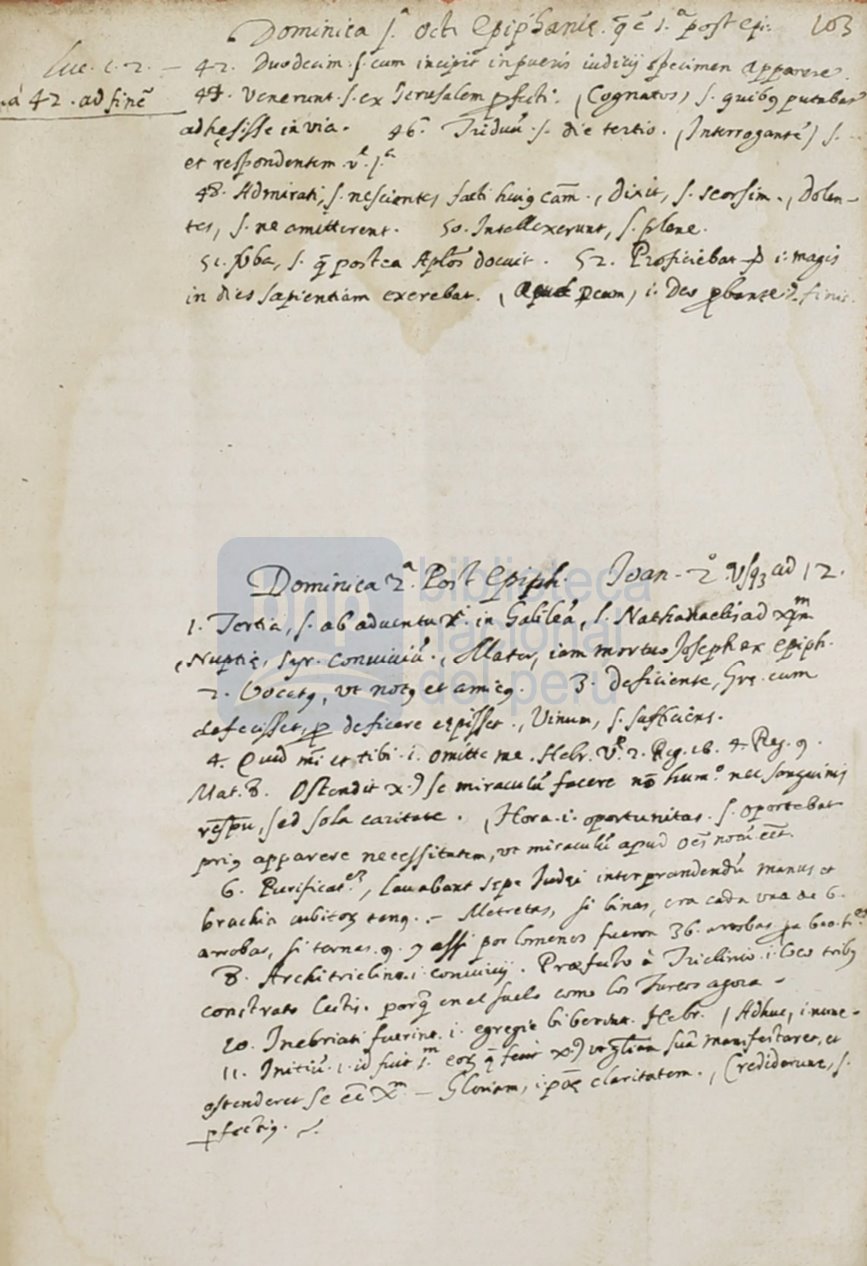 Dominica 1ª Oct. Epiphanię. q̃ ẽ 1.ª post epi. 103
Luc. c. 2. — 42. Duodecim. s. cum incipit in pueris iudicij specimen apparere.
à 42. ad finẽ 44. Venerunt. s. ex Ierusalem pfecti. (Cognatos) s. quibꝯ putabat
adhęsisse in via. 46. Triduũ. s. die tertio. (Interrogantẽ) s.
et respondentem
48. Admirati, s. nescientes facti huiꝯ cam̃., dixit, s. seorsim., dolen-
tes, s. ne amitterent. 50. Intellexerunt, s. plene.
51. s. q̃ postea Aplõs docuit. 52. Proficiebat i. magis
in dies sapientiam exerebat. (Apud Deum) i. Deo pbante. finis.
Dominica 2ª. Post Epiph. Ioan. 2º. Vsqꝫ ad 12.
1. Tertia, s. ab aduentu Xi. in Galileã, l. Nathanaelis ad Xpm
(Nuptię, Syr. conuiuiũ., Mater, iam mortuo Joseph ex epiph.
2. Vocatꝯ, vt notꝯ et amicꝯ. 3. deficiente, Gre. cum
defecisset, p deficere cępisset., Vinum, s. sufficiens.
4. Quid mi et tibi. i. omitte me. Hebr. 2. Reg. 16. 4. Reg. 9.
Mat. 8. Ostendit X. se miraculũ facere nõ hum.º nec sanguinis
respu, sed sola caritate. (Hora. i. oportunitas. s. oportebat
priꝯ apparere necessitatem, vt miraculũ apud oẽs notũ eẽt.
6. Purificat, lauabant sępe Iudęi inter prandendũ manus et
brachia cubito tenꝯ. — Metretas, si binas, era cada vna de 6.
arrobas, si ternas. 9. y assi por lomenos fueron 36. arrobas pa
8. Architriclino. i. conuiuij. Præfecto à Triclinio. i. loco tribꝯ
constrato lectis. porq̃ en el suelo como los Turcos agora —
10. Inebriati fuerint. i. egregie biberint. Hebr. (Adhuc, i. nunc.
11. Initiũ. i. id fuit 1.m eoꝝ q̃ fecit X. vt gl̃iam suã manifestaret, et
ostenderet se eẽ Xm — Gloriam, i. claritatem., Crediderunt, s.
pfectiꝯ.
biblioteca
nacional
del perú